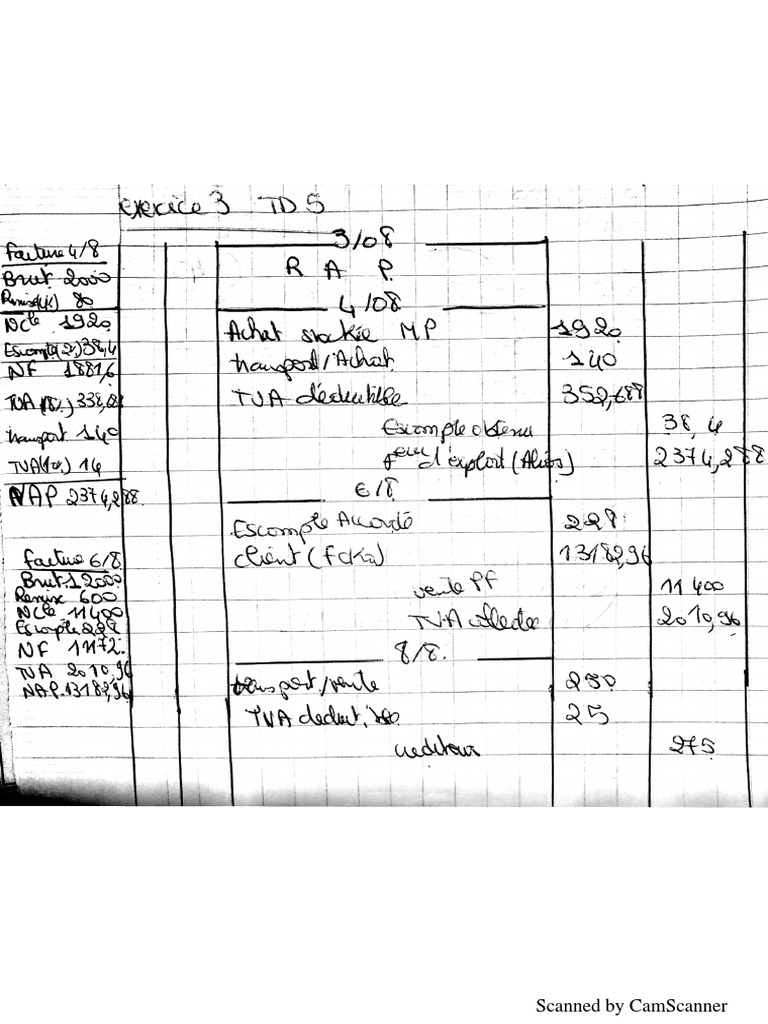 exercice 3 TD 5
Facture 4/8
Brut 2000
Remise(4%) 80
NCle 1920
Escompte(2%) 38,4
NF 1881,6
TVA (18%) 338,68
transport 140
TVA(10%) 14
NAP 2374,288
Facture 6/8
Brut 12000
Remise 600
NCle 11400
Escompte 228
NF 11172
TVA 2010,96
NAP 13182,96
3/08
R A P
4/08
Achat stockée MP 1920
transport/Achat 140
TVA déductible 352,688
Escompte obtenu 38,4
feur d'exploit (Alios) 2374,288
6/8
Escompte Accordé 228
client (Foka) 13182,96
vente PF 11400
TVA collectée 2010,96
8/8
transport/vente 250
TVA deduct. 25
crediteurs 275
Scanned by CamScanner